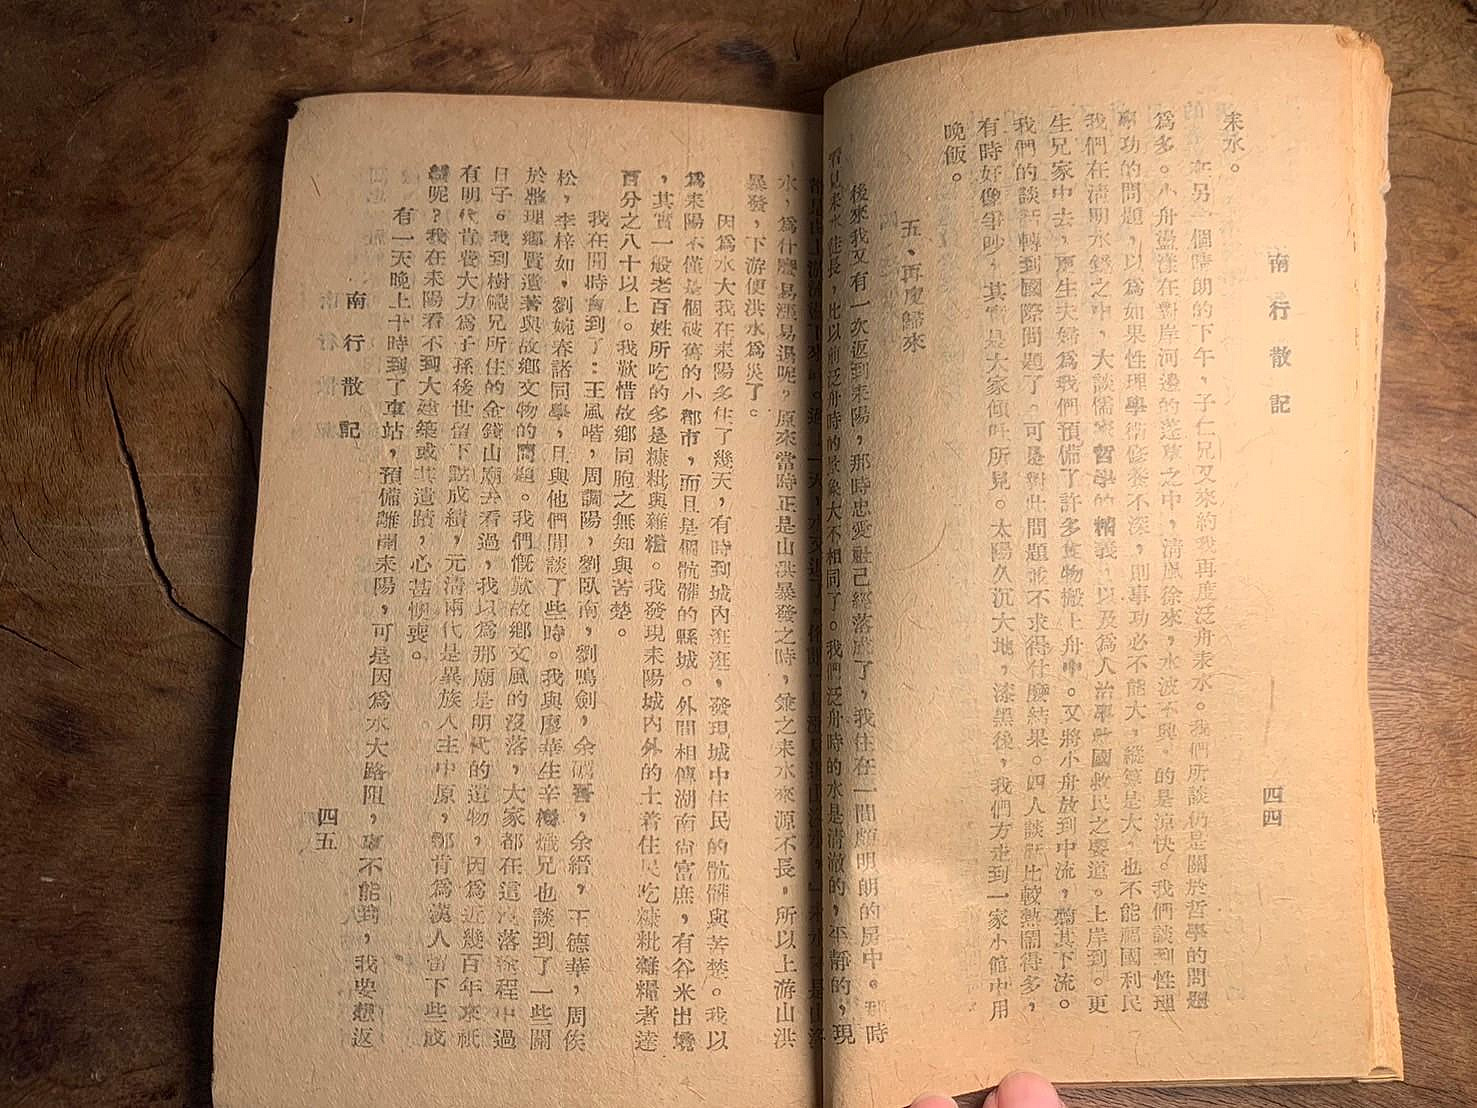 南行散記
四四
耒水。
在另一個晴朗的下午，子仁兄又來約我再度泛舟耒水。我們所談仍是關於哲學的問題
爲多。小舟盪漾在對岸河邊的蓬草之中，清風徐來，水波不興，的是涼快。我們談到性理
事功的問題，以爲如果性理學術修養不深，則事功必不能大，縱算是大，也不能福國利民
我們在清明水鏡之中，大談儒家哲學的精義，以及爲人治事救國救民之要道。上岸到。更
生兄家中去，更生夫婦爲我們預備了許多食物搬上舟中。又將小舟放到中流，聽其下流。
我們的談話轉到國際問題了。可是對此問題並不求得什麼結果。四人談話比較熱鬧得多，
有時好像爭吵，其實是大家傾吐所見。太陽久沉大地，漆黑後，我們方走到一家小館中用
晚飯。
五、再度歸來
後來我又有一次返到耒陽，那時忠愛社已經落成了，我住在一間頗明朗的房中。那時
看見耒水住長，比以前泛舟時的景象大不相同了。我們泛舟時的水是清澈的，平靜的，現
水，爲什麼易漲易退呢，原來當時正是山洪暴發之時，兼之耒水來源不長，所以上游山洪
暴發，下游便洪水爲災了。
因爲水大我在耒陽多住了幾天，有時到城內逛逛，發現城中住民的骯髒與苦楚。我以
爲耒陽不僅是個破舊的小郡市，而且是個骯髒的縣城。外間相傳湖南尙富庶，有谷米出境
，其實一般老百姓所吃的多是糠粃與雜糧。我發現耒陽城內外的土着住民吃糠粃雜糧者達
百分之八十以上。我歎惜故鄉同胞之無知與苦楚。
我在閒時會到了：王風喈，周調陽，劉臥南，劉鳴劍，余 ，余縉，王德華，周俟
松，李梓如，劉婉春諸同學，且與他們閒談了些時。我與廖華生辛樹幟兄也談到了一些關
於整理鄉賢遺著與故鄉文物的問題。我們慨歎故鄉文風的沒落，大家都在這沒落途程中過
日子。我到樹幟兄所住的金錢山廟去看過，我以爲那廟是明代的遺物，因爲近幾百年來祇
有明代肯費大力爲子孫後世留下點成績，元清兩代是異族人主中原，那肯爲漢人留下些成
績呢？我在耒陽看不到大建築或其遺蹟，心甚懊喪。
有一天晚上十時到了車站，預備離開耒陽，可是因爲水大路阻，車不能到，我要想返
南行散記
四五